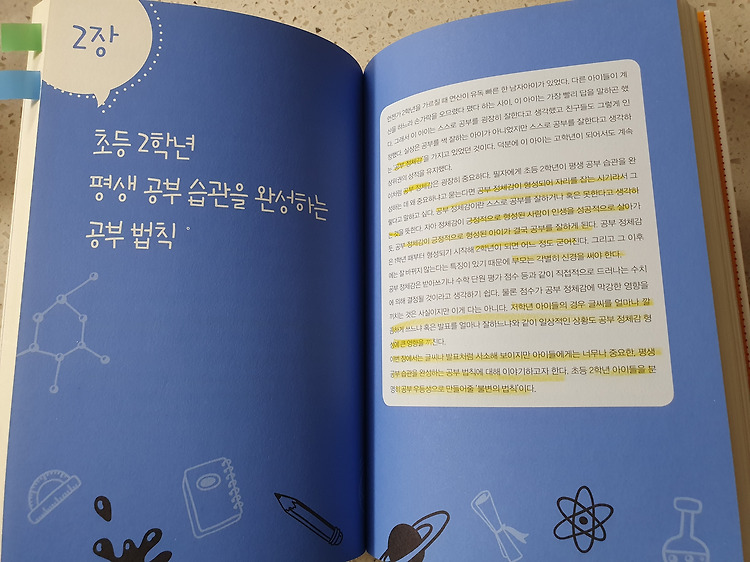 2장
초등 2학년
평생 공부 습관을 완성하는
공부 법칙
언젠가 2학년을 가르칠 때 연산이 유독 빠른 한 남자아이가 있었다. 다른 아이들이 계
산을 하느라 손가락을 오므렸다 폈다 하는 사이, 이 아이는 가장 빨리 답을 말하곤 했
다. 그래서 이 아이는 스스로 공부를 굉장히 잘한다고 생각했고 친구들도 그렇게 인
정했다. 실상은 공부를 썩 잘하는 아이가 아니었지만 스스로 공부를 잘한다고 생각하
는 '공부 정체감'을 가지고 있었던 것이다. 덕분에 이 아이는 고학년이 되어서도 계속
상위권의 성적을 유지했다.
이처럼 공부 정체감은 굉장히 중요하다. 필자에게 초등 2학년이 평생 공부 습관을 완
성하는 데 왜 중요하냐고 묻는다면 공부 정체감이 형성되어 자리를 잡는 시기라서 그
렇다고 말하고 싶다. 공부 정체감이란 스스로 공부를 잘하거나 혹은 못한다고 생각하
는 것을 뜻한다. 자아 정체감이 긍정적으로 형성된 사람이 인생을 성공적으로 살아가
듯, 공부 정체감이 긍정적으로 형성된 아이가 결국 공부를 잘하게 된다. 공부 정체감
은 1학년 때부터 형성되기 시작해 2학년이 되면 어느 정도 굳어진다. 그리고 그 이후
에는 잘 바뀌지 않는다는 특징이 있기 때문에 부모는 각별히 신경을 써야 한다.
공부 정체감은 받아쓰기나 수학 단원 평가 점수 등과 같이 직접적으로 드러나는 수치
에 의해 결정될 것이라고 생각하기 쉽다. 물론 점수가 공부 정체감에 막강한 영향을
끼치는 것은 사실이지만 이게 다는 아니다. 저학년 아이들의 경우 글씨를 얼마나 깔
끔하게 쓰느냐 혹은 발표를 얼마나 잘하느냐와 같이 일상적인 상황도 공부 정체감 형
성에 큰 영향을 끼친다.
이번 장에서는 글씨나 발표처럼 사소해 보이지만 아이들에게는 너무나 중요한, 평생
공부 습관을 완성하는 공부 법칙에 대해 이야기하고자 한다. 초등 2학년 아이들을 분
명히 공부 우등생으로 만들어줄 '불변의 법칙'이다.